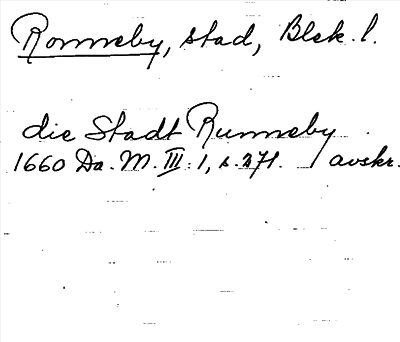 Ronneby, stad, Blek. l.
die Stadt Runneby
1660 Da. M. III: 1, s. 271. / avskr.